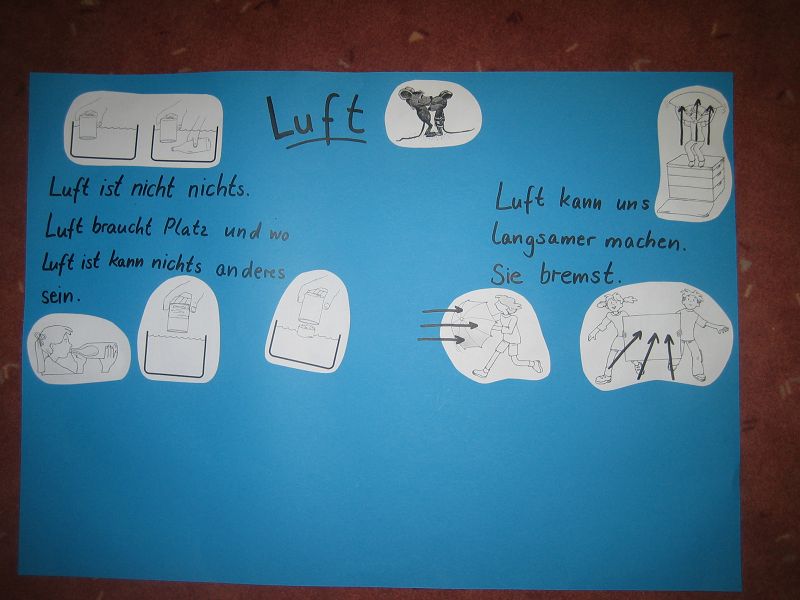 Luft
Luft ist nicht nichts.
Luft braucht Platz und wo
Luft ist kann nichts anderes
sein.
Luft kann uns
langsamer machen.
Sie bremst.